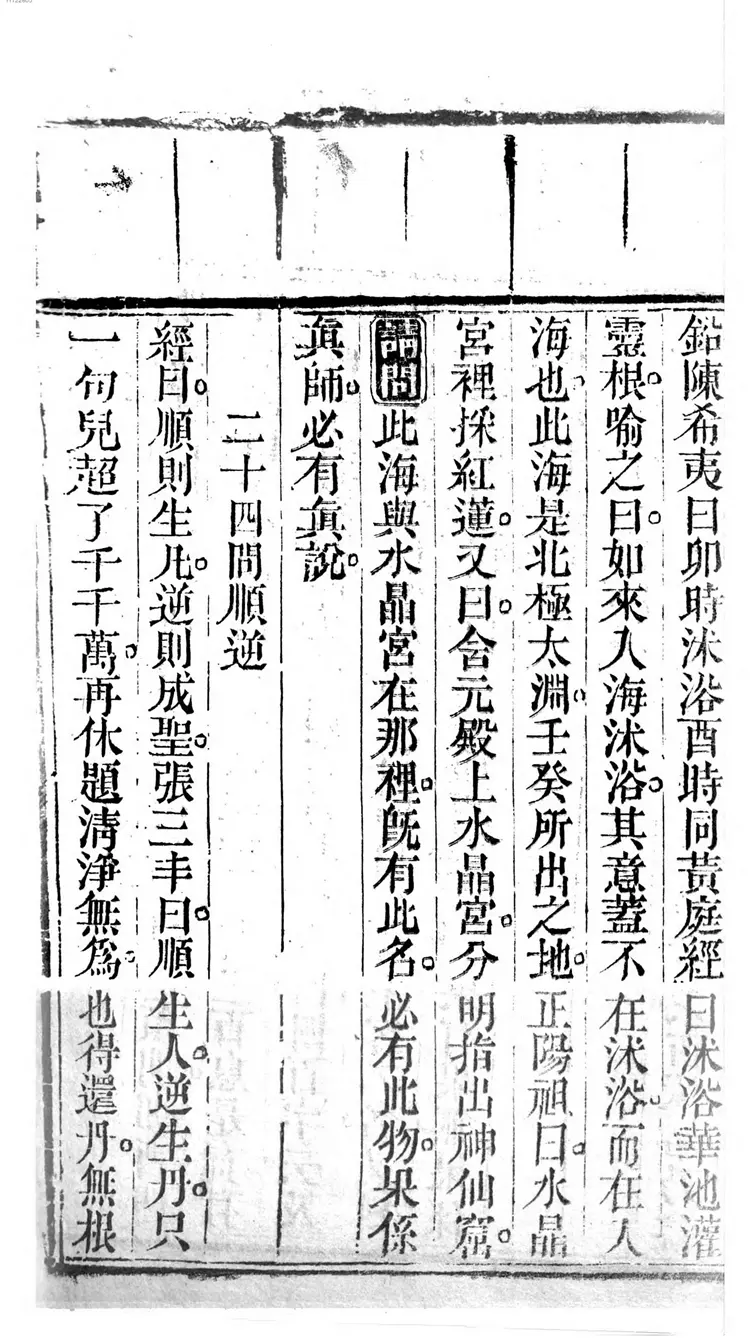 鉛陳希夷曰卯時沐浴酉時同黃庭經曰沐浴華池灌
靈根。喻之曰。如來入海沐浴。其意蓋不在沐浴。而在入
海也。此海是北極太淵。壬癸所出之地。正陽祖曰。水晶
宮裡採紅蓮。又曰。含元殿上水晶宮。分明指出神仙窟。
請問此海與水晶宮在那裡。旣有此名。必有此物。果係
眞師。必有眞說。
二十四問順逆
經曰。順則生凡。逆則成聖。張三丰曰。順生人。逆生丹。只
一句兒超了千千萬。再休題清淨無爲。也得還丹。無根